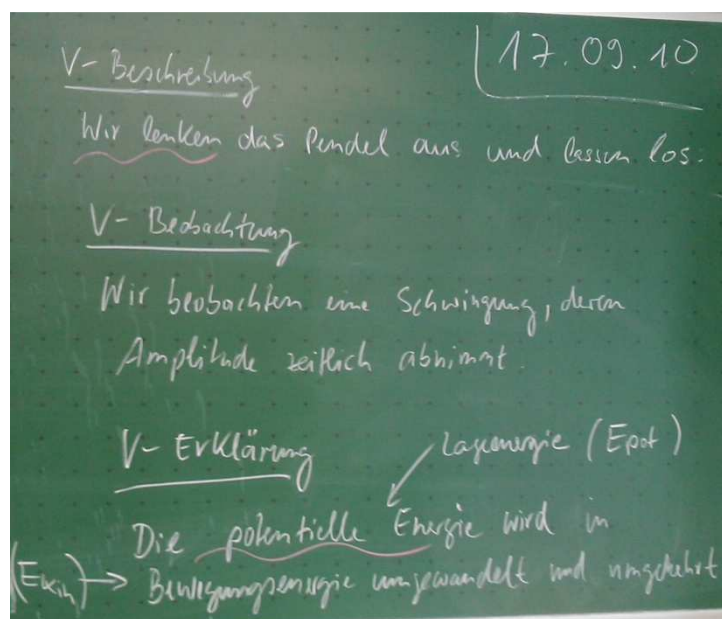 17.09.10
V-Beschreibung
Wir lenken das Pendel aus und lassen los.
V-Beobachtung
Wir beobachten eine Schwingung, deren
Amplitude zeitlich abnimmt.
V-Erklärung
Lageenergie (Epot)
Die potentielle Energie wird in
(Ekin) → Bewegungsenergie umgewandelt und umgekehrt